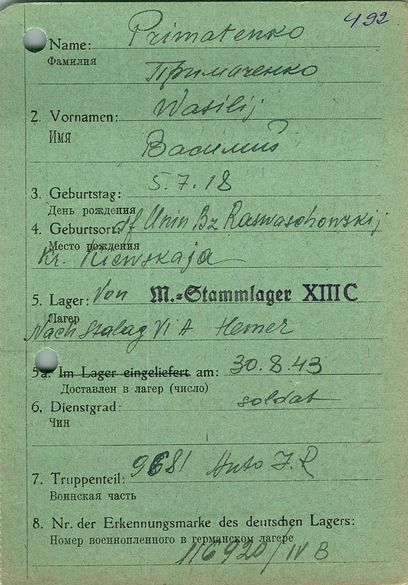 492
Name: Primatenko
Фамилия
Примаченко
2. Vornamen: Wasilij
Имя
Василий
3. Geburtstag: 5.7.18
День рождения
4. Geburtsort: Df. Unin Bz Raswaschowskij
Место рождения
Kr. Kiewskaja
5. Lager: Von M.-Stammlager XIII C
Лагер
Nach Stalag VI A Hemer
5a. Im Lager eingeliefert am: 30.8.43
Доставлен в лагер (число)
6. Dienstgrad: soldat
Чин
7. Truppenteil: 9681 Auto
Воинская часть
8. Nr. der Erkennungsmarke des deutschen Lagers:
Номер военнопленного в германском лагере
116920/IV B